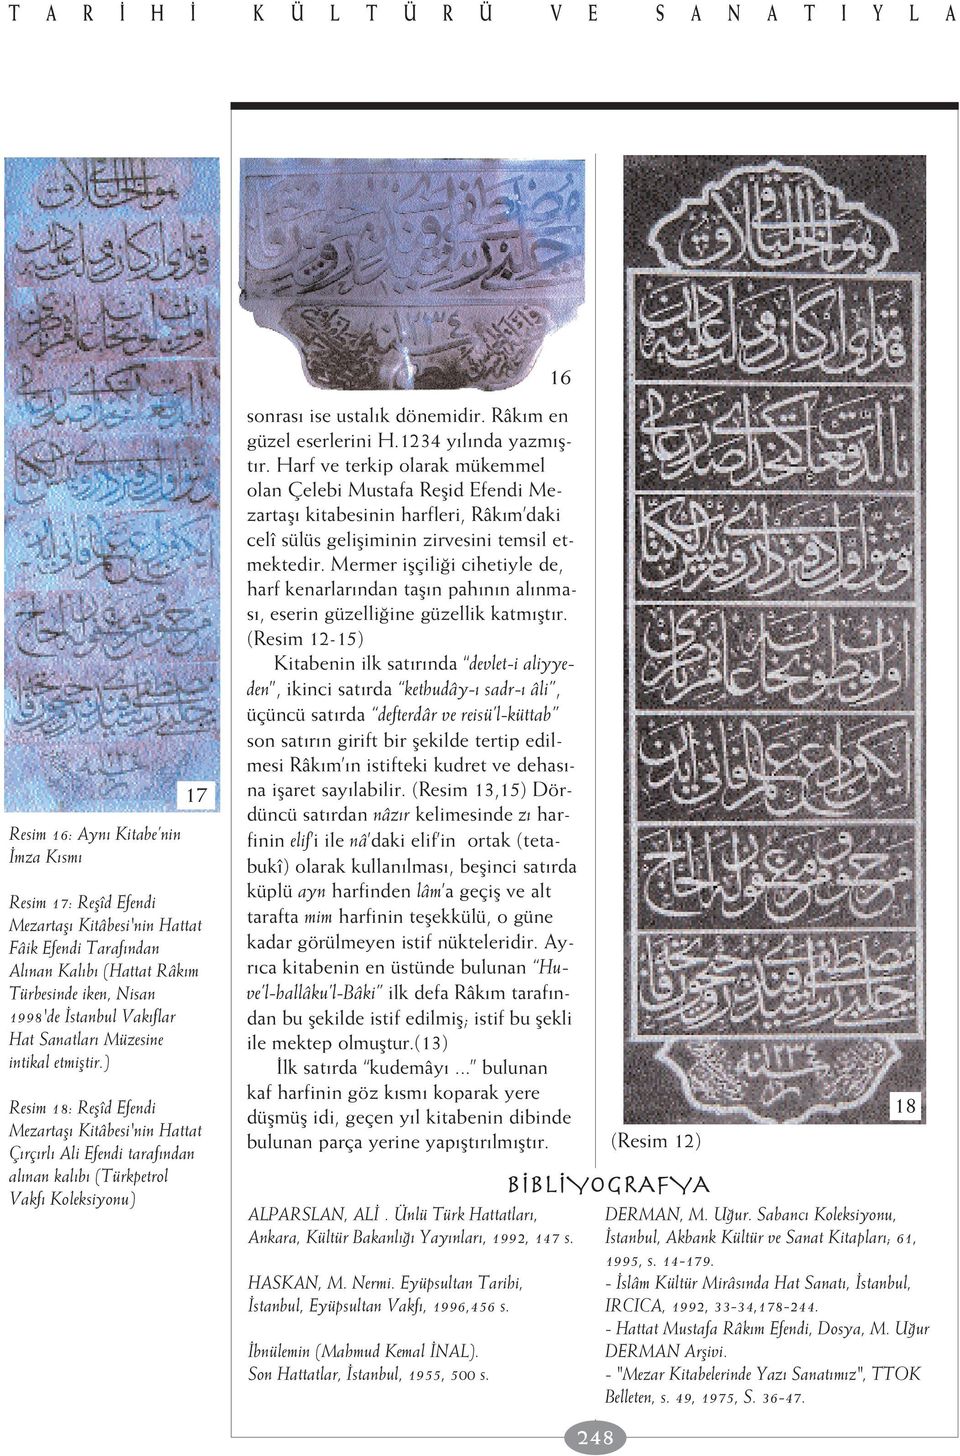 TARİHİ KÜLTÜRÜ VE SANATIYLA
16
17
Resim 16: Aynı Kitabe'nin
İmza Kısmı
Resim 17: Reşîd Efendi
Mezartaşı Kitâbesi'nin Hattat
Fâik Efendi Tarafından
Alınan Kalıbı (Hattat Râkım
Türbesinde iken, Nisan
1998'de İstanbul Vakıflar
Hat Sanatları Müzesine
intikal etmiştir.)
Resim 18: Reşîd Efendi
Mezartaşı Kitâbesi'nin Hattat
Çırçırlı Ali Efendi tarafından
alınan kalıbı (Türkpetrol
Vakfı Koleksiyonu)
sonrası ise ustalık dönemidir. Râkım en
güzel eserlerini H.1234 yılında yazmış-
tır. Harf ve terkip olarak mükemmel
olan Çelebi Mustafa Reşid Efendi Me-
zartaşı kitabesinin harfleri, Râkım'daki
celî sülüs gelişiminin zirvesini temsil et-
mektedir. Mermer işçiliği cihetiyle de,
harf kenarlarından taşın pahının alınma-
sı, eserin güzelliğine güzellik katmıştır.
(Resim 12-15)
Kitabenin ilk satırında "devlet-i aliyye-
den", ikinci satırda "kethudây-ı sadr-ı âli",
üçüncü satırda "defterdâr ve reisü'l-küttab"
son satırın girift bir şekilde tertip edil-
mesi Râkım'ın istifteki kudret ve dehası-
na işaret sayılabilir. (Resim 13,15) Dör-
düncü satırdan nâzır kelimesinde zı har-
finin elif'i ile nâ'daki elif'in ortak (teta-
bukî) olarak kullanılması, beşinci satırda
küplü ayn harfinden lâm'a geçiş ve alt
tarafta mim harfinin teşekkülü, o güne
kadar görülmeyen istif nükteleridir. Ay-
rıca kitabenin en üstünde bulunan "Hu-
ve'l-hallâku'l-Bâki" ilk defa Râkım tarafın-
dan bu şekilde istif edilmiş; istif bu şekli
ile mektep olmuştur.(13)
İlk satırda "kudemâyı ..." bulunan
kaf harfinin göz kısmı koparak yere
düşmüş idi, geçen yıl kitabenin dibinde
bulunan parça yerine yapıştırılmıştır.
18
(Resim 12)
BİBLİYOGRAFYA
ALPARSLAN, ALİ . Ünlü Türk Hattatları,
Ankara, Kültür Bakanlığı Yayınları, 1992, 147 s.
HASKAN, M. Nermi. Eyüpsultan Tarihi,
İstanbul, Eyüpsultan Vakfı, 1996,456 s.
İbnülemin (Mahmud Kemal İNAL).
Son Hattatlar, İstanbul, 1955, 500 s.
DERMAN, M. Uğur. Sabancı Koleksiyonu,
İstanbul, Akbank Kültür ve Sanat Kitapları; 61,
1995, s. 14-179.
- İslâm Kültür Mirâsında Hat Sanatı, İstanbul,
IRCICA, 1992, 33-34,178-244.
- Hattat Mustafa Râkım Efendi, Dosya, M. Uğur
DERMAN Arşivi.
- "Mezar Kitabelerinde Yazı Sanatımız", TTOK
Belleten, s. 49, 1975, S. 36-47.
248